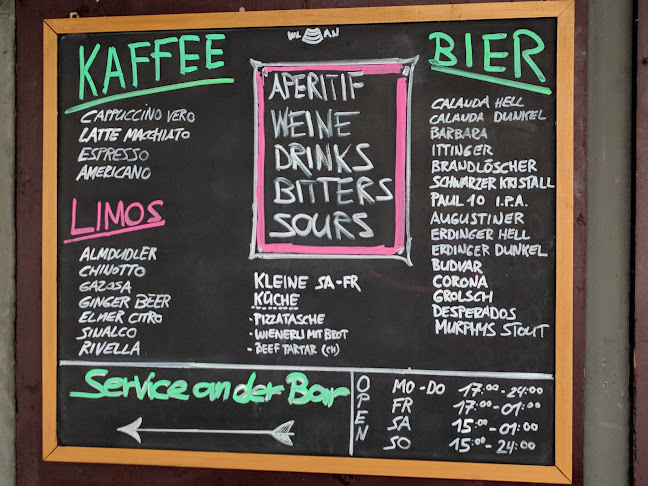 WLAN
KAFFEE
CAPPUCCINO VERO
LATTE MACCHIATO
ESPRESSO
AMERICANO
LIMOS
ALMDUDLER
CHINOTTO
GAZOSA
GINGER BEER
ELMER CITRO
SINALCO
RIVELLA
APERITIF
WEINE
DRINKS
BITTERS
SOURS
KLEINE SA-FR
KÜCHE
- PIZZATASCHE
- WIENERLI MIT BROT
- BEEF TARTAR (CH)
BIER
CALANDA HELL
CALANDA DUNKEL
BARBARA
ITTINGER
BRANDLÖSCHER
SCHWARZER KRISTALL
PAUL 10 I.P.A.
AUGUSTINER
ERDINGER HELL
ERDINGER DUNKEL
BUDVAR
CORONA
GROLSCH
DESPERADOS
MURPHYS STOUT
Service an der Bar
OPEN
MO - DO 17:00 - 24:00
FR 17:00 - 01:00
SA 15:00 - 01:00
SO 15:00 - 24:00